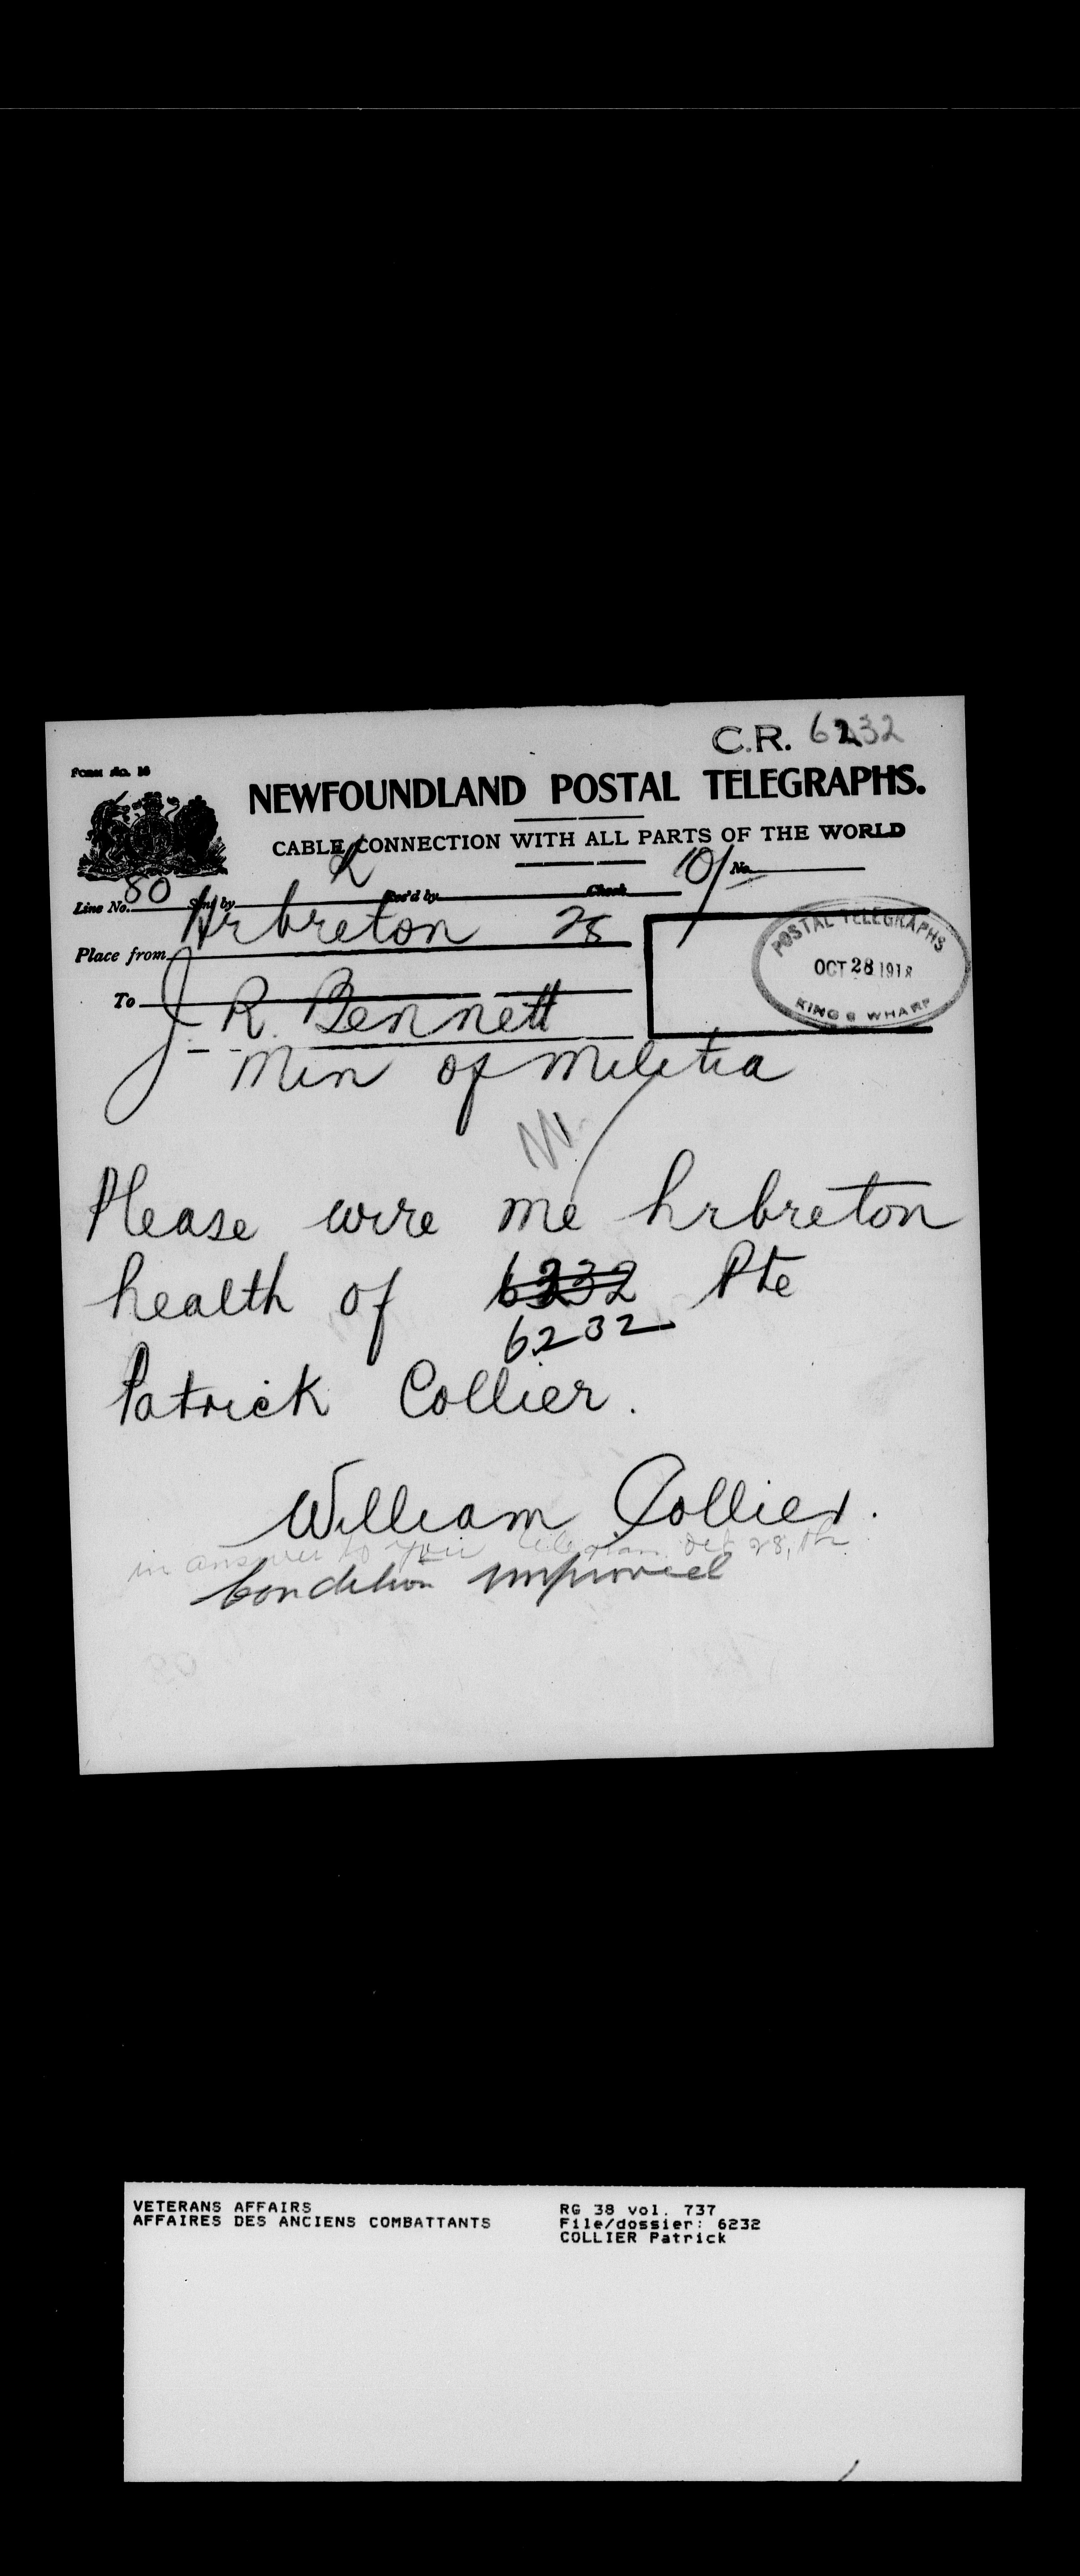 C.R. 6232
Form No. 16
NEWFOUNDLAND POSTAL TELEGRAPHS.
CABLE CONNECTION WITH ALL PARTS OF THE WORLD
Line No. 80 Sent by Rec'd by Check 10/ No.
Place from Hrbreton 28
POSTAL TELEGRAPHS
OCT 28 1918
KING'S WHARF
To J. R. Bennett
Min of Militia
Please wire me hrbreton
health of 6332 Pte
6232
Patrick Collier.
William Collier.
in answer to your telegram Oct 28, th
Condition improved
VETERANS AFFAIRS
AFFAIRES DES ANCIENS COMBATTANTS
RG 38 vol. 737
File/dossier: 6232
COLLIER Patrick